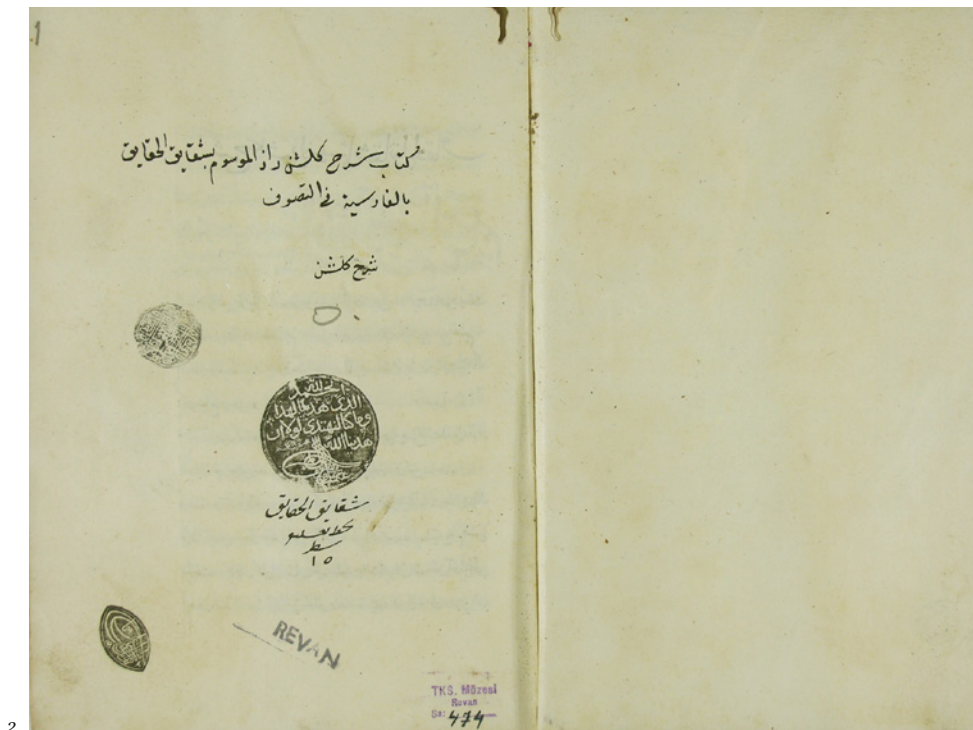 1
كتاب شرح كلشن راز الموسوم بشقايق الحقايق
بالفارسية في التصوف
شرح كلشن
الحمد لله
الذى هدينا لهذا
وما كنا لنهتدى لولا ان
هدينا الله
شقايق الحقايق
بخط تعليق
سطر
١٥
REVAN
TKS. Müzesi
Revan
474
2